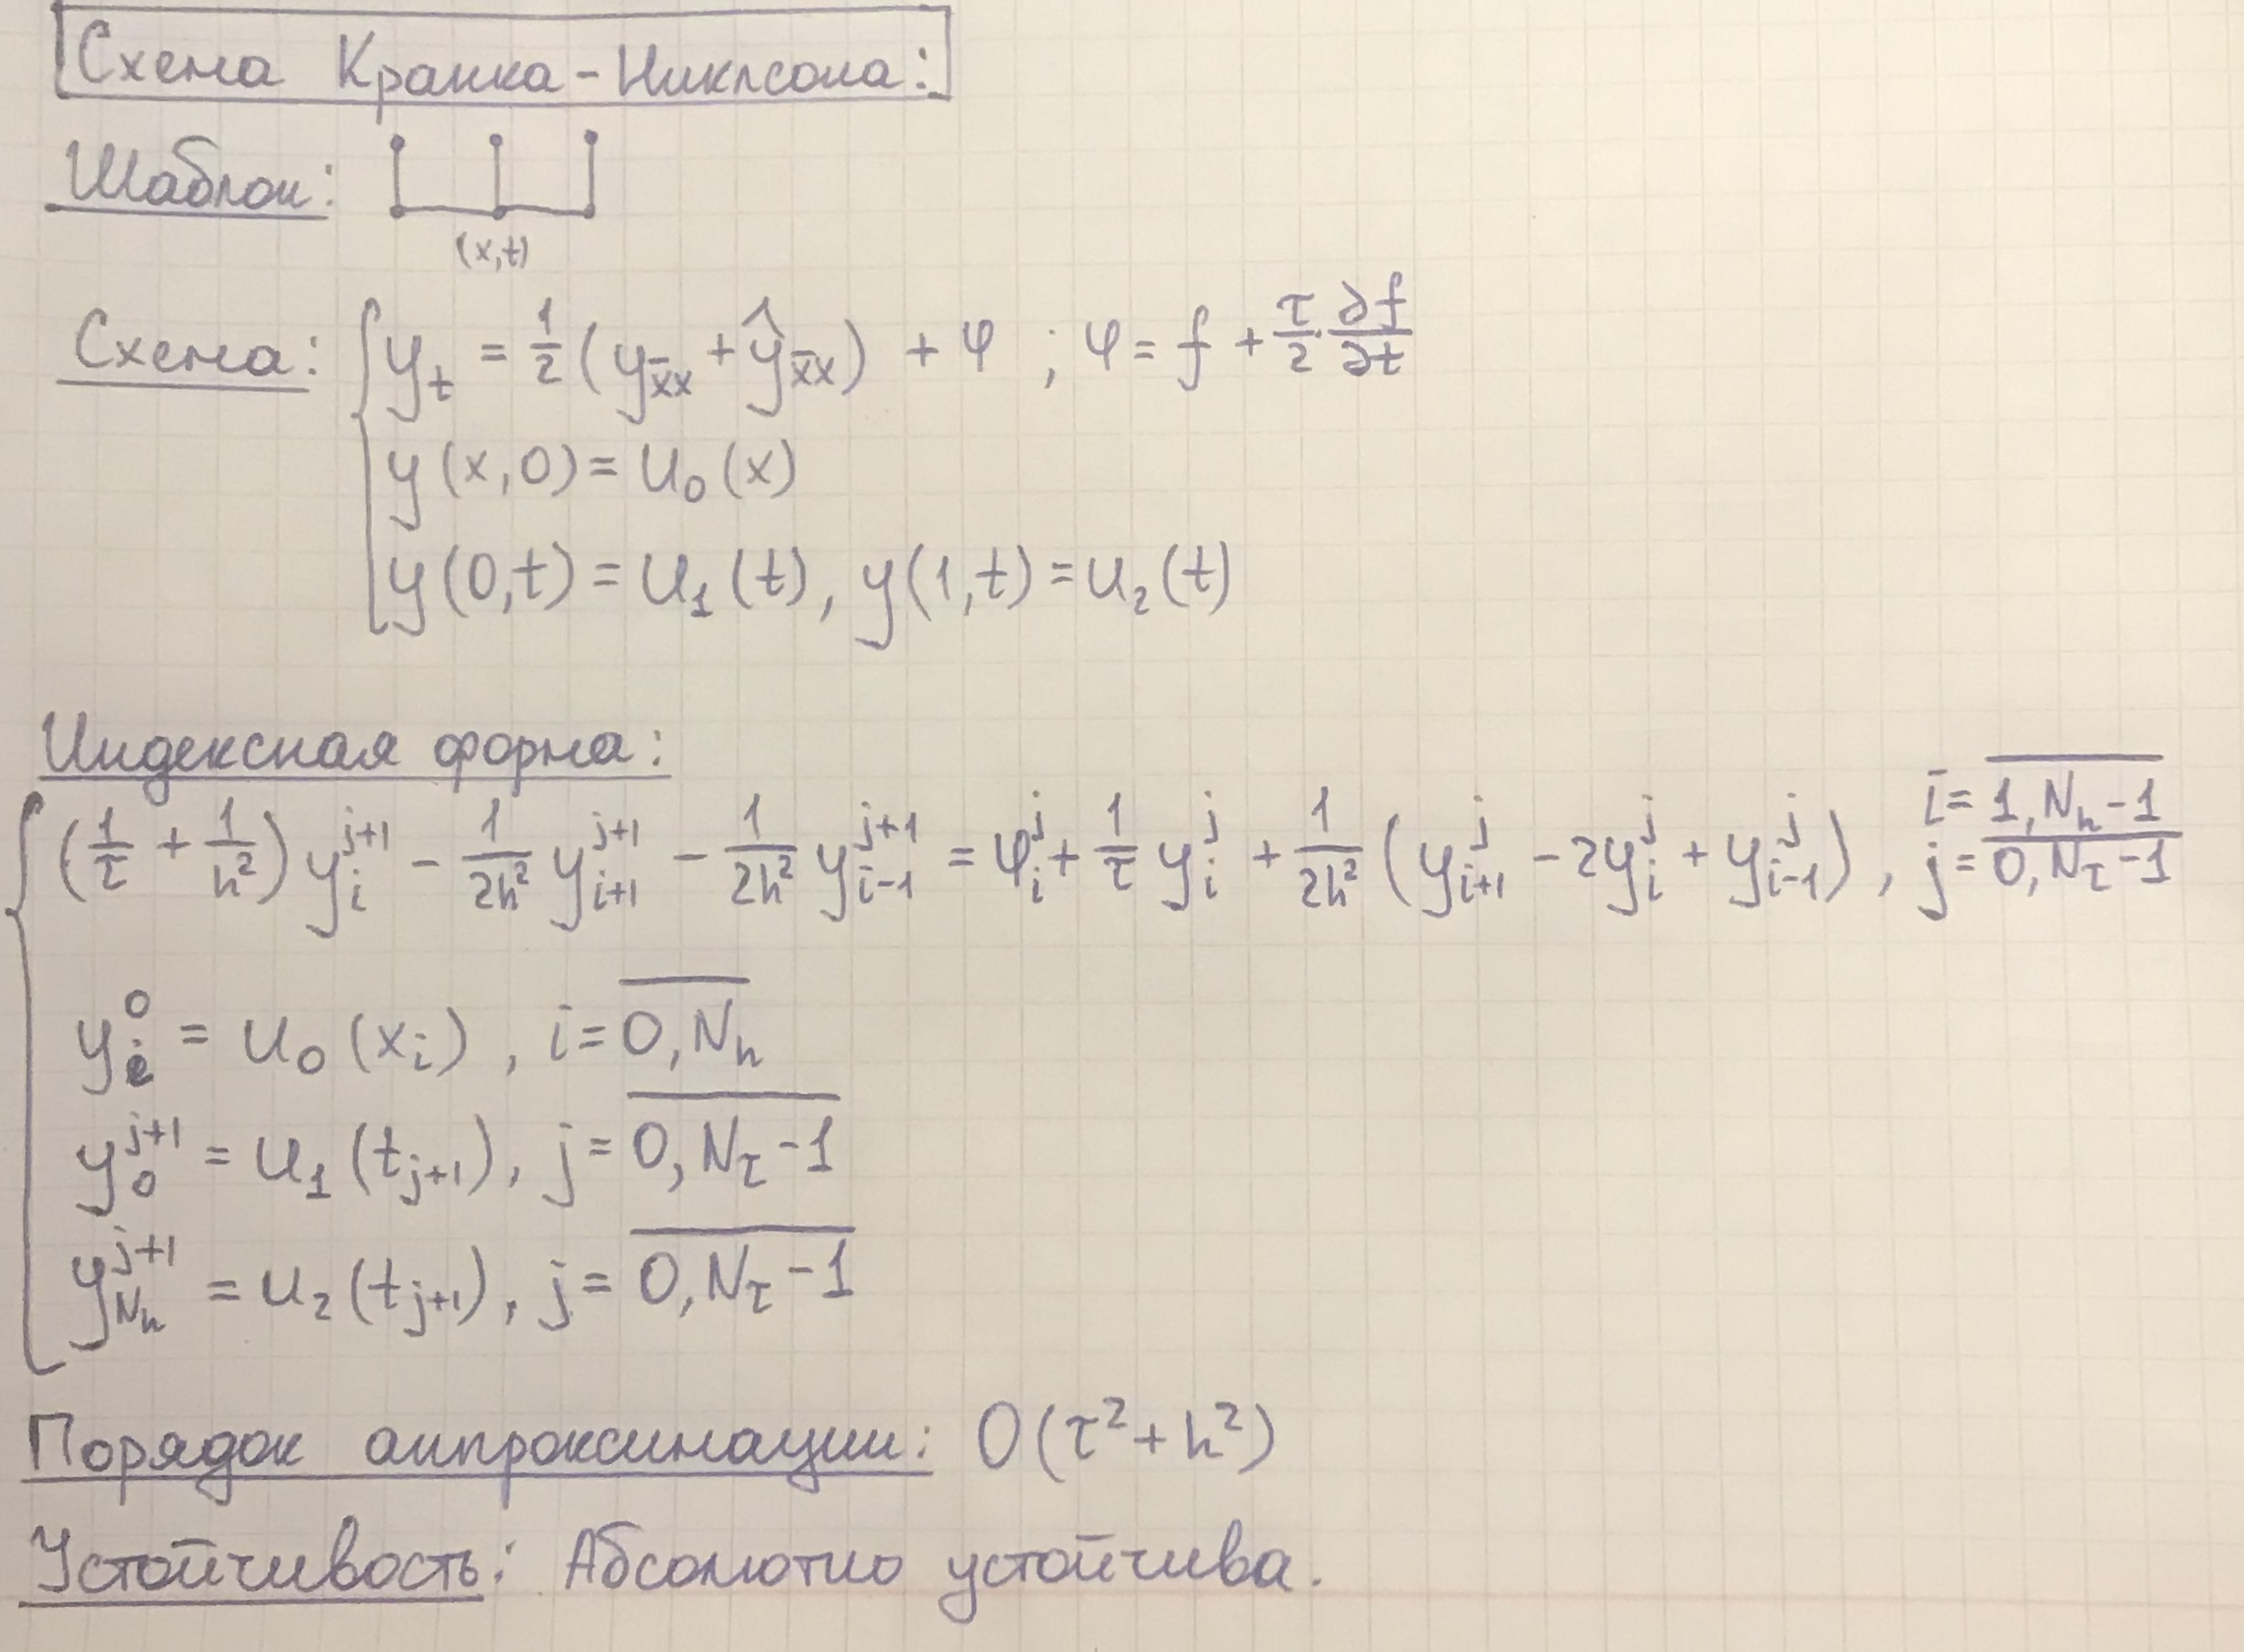 Схема Кранка-Никлсона:
Шаблон:
(x,t)
Схема: { y_t = 1/2 (y_x̄x + ŷ_x̄x) + φ ; φ = f + τ/2 · ∂f/∂t
y(x,0) = u₀(x)
y(0,t) = u₁(t), y(1,t) = u₂(t)
Индексная форма:
{ (1/τ + 1/h²) y_i^{j+1} - 1/(2h²) y_{i+1}^{j+1} - 1/(2h²) y_{i-1}^{j+1} = φ_i^j + 1/τ y_i^j + 1/(2h²) (y_{i+1}^j - 2y_i^j + y_{i-1}^j), i = \overline{1, N_h - 1}
j = \overline{0, N_τ - 1}
y_i^0 = u₀(x_i), i = \overline{0, N_h}
y_0^{j+1} = u₁(t_{j+1}), j = \overline{0, N_τ - 1}
y_{N_h}^{j+1} = u₂(t_{j+1}), j = \overline{0, N_τ - 1}
Порядок аппроксимации: O(τ² + h²)
Устойчивость: Абсолютно устойчива.